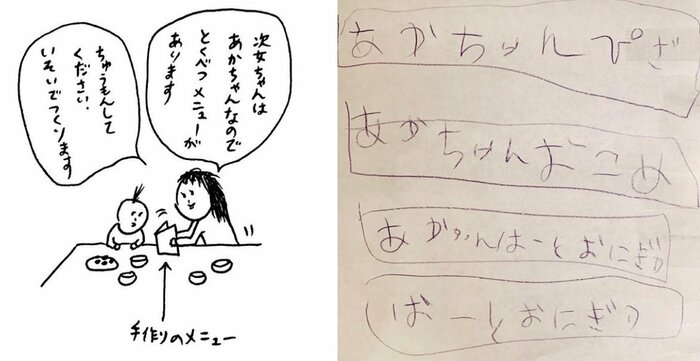 次女ちゃんは
あかちゃんなので
とくべつメニューが
あります
ちゅうもんして
ください。
いそいでつくります
手作りのメニュー
あかちゅんぴざ
あかちゅんおこめ
はーとおにぎり
はーとおにぎり